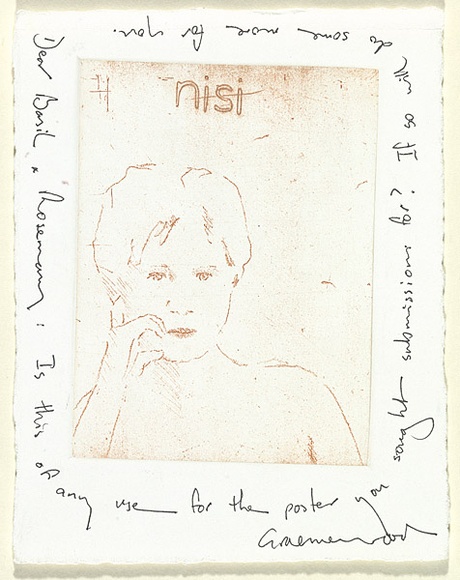 Dear Basil & Rosemary: Is this of
any use for the poster you
sought submissions for? If so will
do some more for you.
Graemewood
nisi